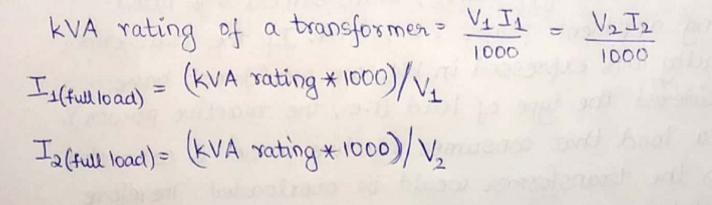 kVA rating of a transformer = V₁ I₁ / 1000 = V₂ I₂ / 1000
I₁(full load) = (kVA rating * 1000) / V₁
I₂(full load) = (kVA rating * 1000) / V₂